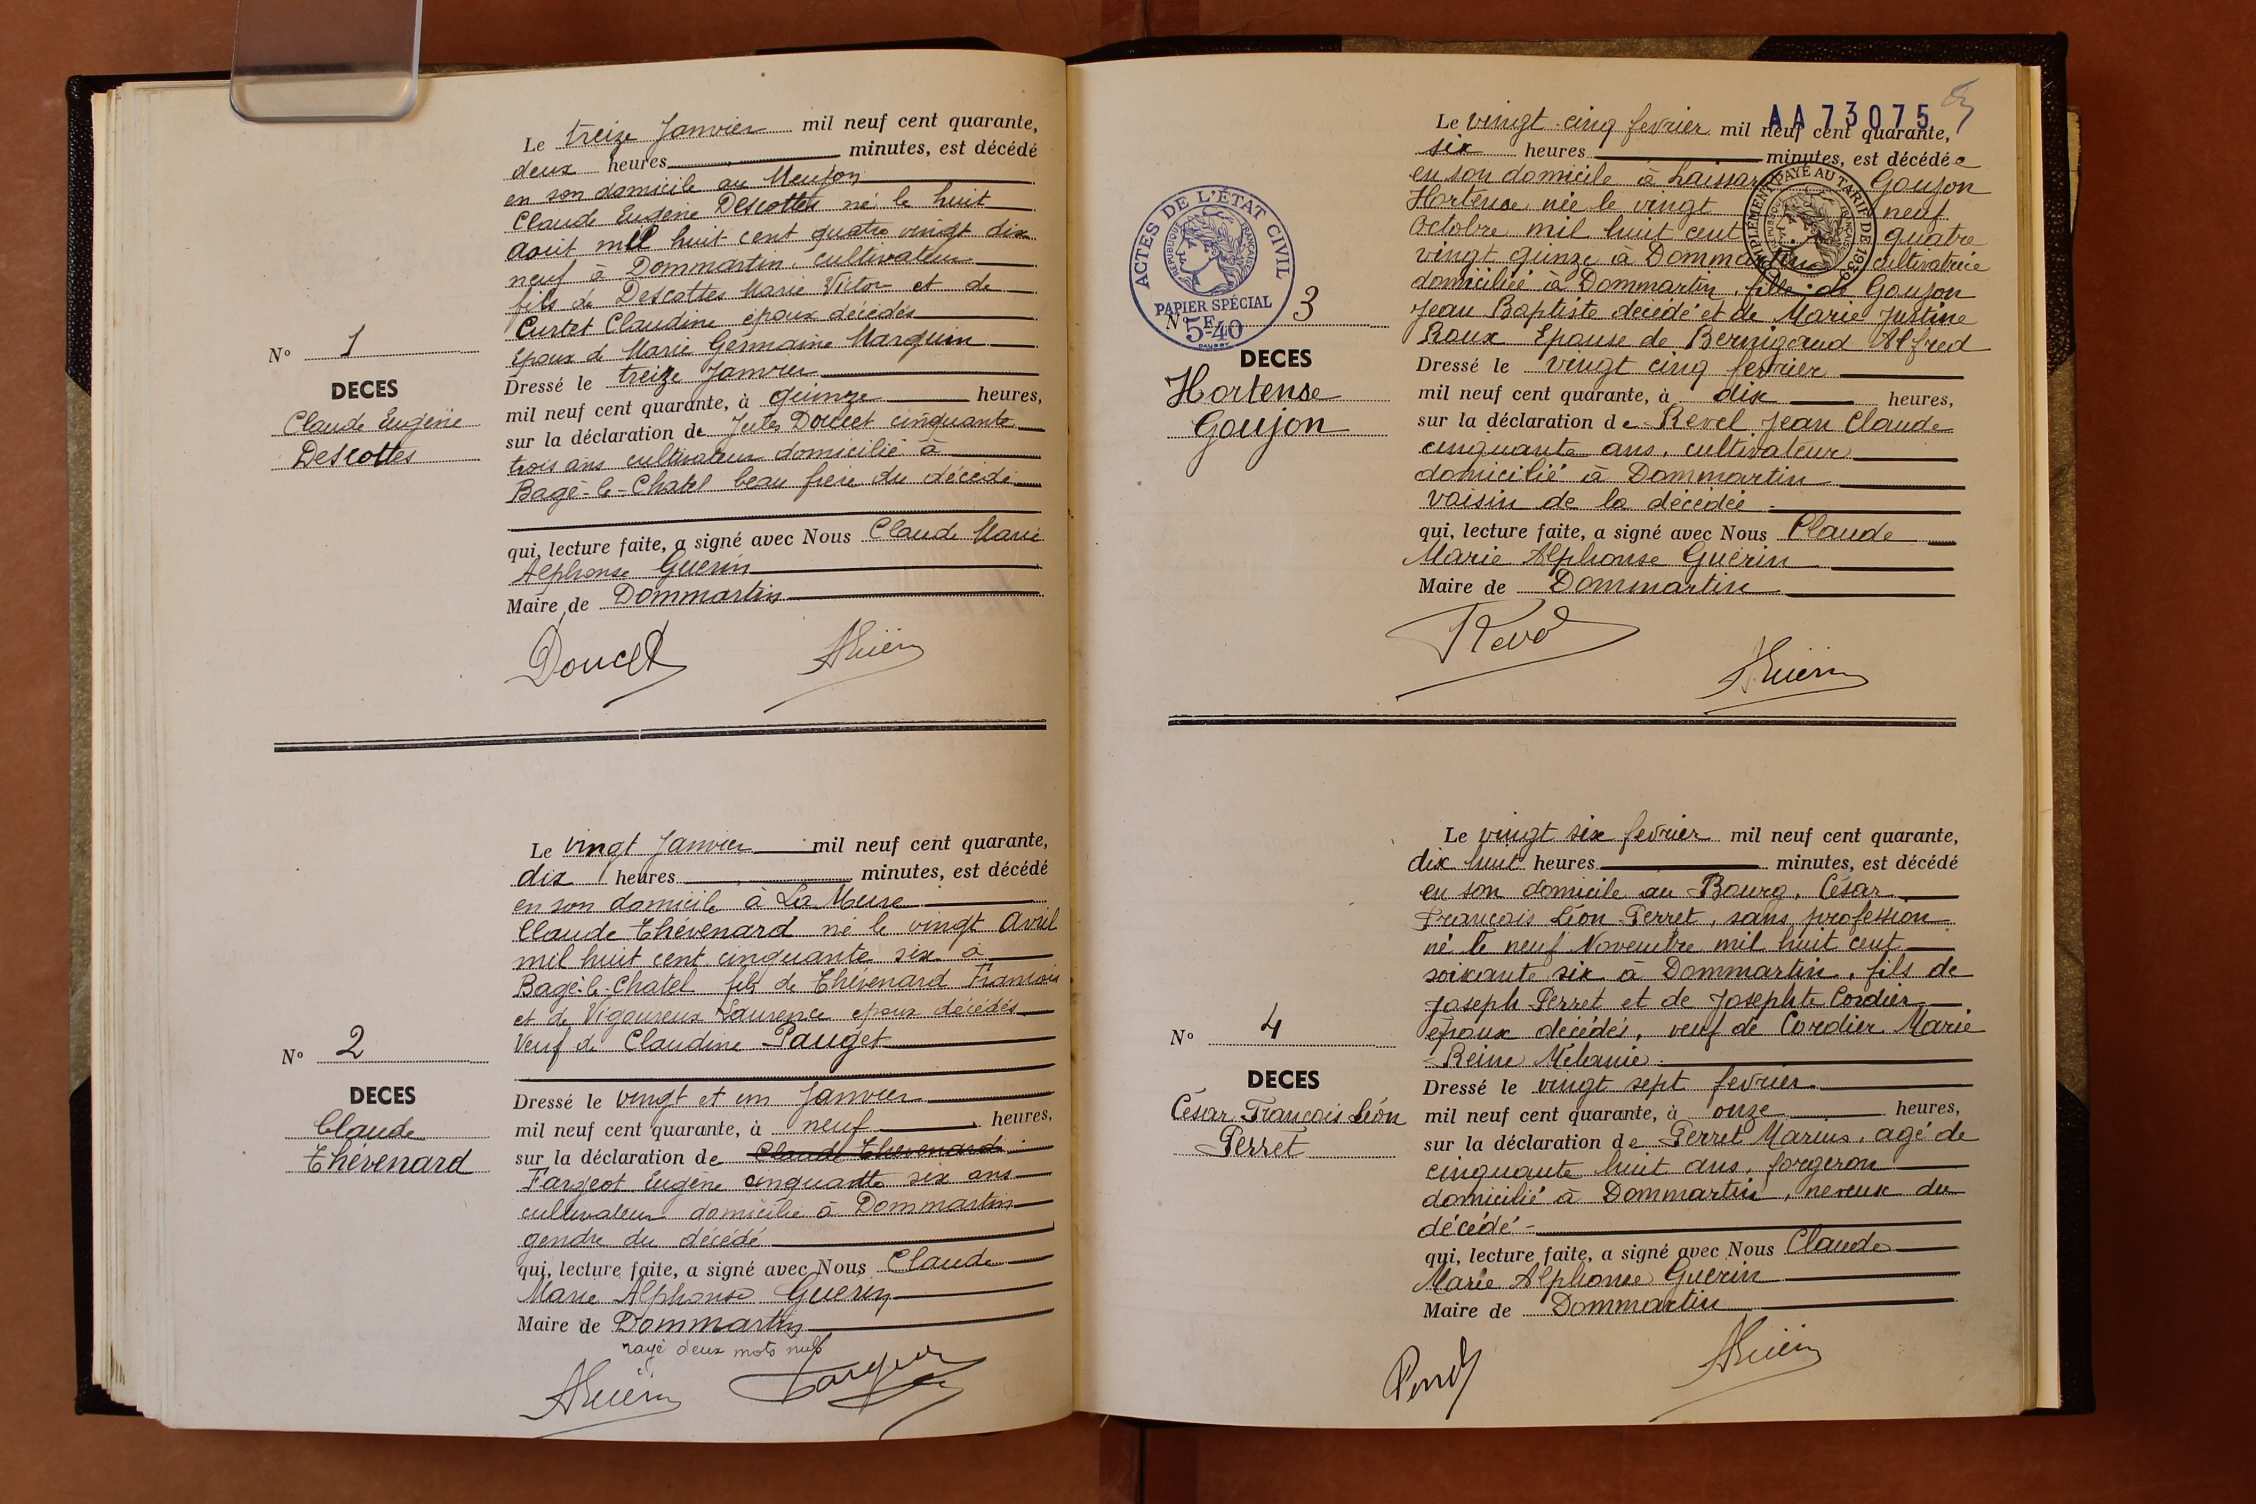 Le treize Janvier mil neuf cent quarante,
deux heures minutes, est décédé
en son domicile au
Claude Eugène Descottes né le huit
Aout mil huit cent quatre vingt dix
neuf à Dommartin, cultivateur
fils de Descottes Marie Victor et de
Curtet Claudine époux décédés
Epoux d Marie Germaine Marguin
Dressé le treize Janvier
mil neuf cent quarante, à quinze heures,
sur la déclaration de Jules Doucet cinquante
trois ans cultivateur domicilié à
Bagé-le-Chatel beau frère du décédé
qui, lecture faite, a signé avec Nous Claude Marie
Alphonse Guérin
Maire de Dommartin
Doucet
Guérin
N° 1
DECES
Claude Eugène
Descottes
Le vingt Janvier mil neuf cent quarante,
dix heures minutes, est décédé
en son domicile à La Meuse
Claude Thévenard né le vingt Avril
mil huit cent cinquante six à
Bagé-le-Chatel fils de Thévenard François
et de Vigoureux Laurence époux décédés
Veuf de Claudine Pauget
Dressé le vingt et un Janvier
mil neuf cent quarante, à neuf heures,
sur la déclaration de Claude Thévenard
Fargeot Eugène cinquante six ans
cultivateur domicilié à Dommartin
gendre du décédé
qui, lecture faite, a signé avec Nous Claude
Marie Alphonse Guérin
Maire de Dommartin
rayé deux mots nuls
Guérin
N° 2
DECES
Claude
Thévenard
AA73075
Le vingt-cinq fevrier mil neuf cent quarante,
six heures minutes, est décédée
en son domicile à Goujon
Hortense née le vingt neuf
Octobre mil huit cent quatre
vingt quinze à Dommartin cultivatrice
domiciliée à Dommartin, fille de Goujon
Jean Baptiste décédé et de Marie Justine
Roux Epouse de Bernigaud Alfred
Dressé le vingt cinq fevrier
mil neuf cent quarante, à dix heures,
sur la déclaration de Revel Jean Claude
cinquante ans, cultivateur
domicilié à Dommartin
voisin de la décédée
qui, lecture faite, a signé avec Nous Claude
Marie Alphonse Guérin
Maire de Dommartin
Revol
Guérin
ACTES DE L'ÉTAT CIVIL
RÉPUBLIQUE FRANÇAISE
PAPIER SPÉCIAL
5F40
COMPLÉMENT PAYÉ AU TARIF DE 1939
N° 3
DECES
Hortense
Goujon
Le vingt six fevrier mil neuf cent quarante,
dix huit heures minutes, est décédé
en son domicile au Bourg, César
François Léon Perret, sans profession
né le neuf Novembre mil huit cent
soixante six à Dommartin, fils de
Joseph Perret et de Josephte Cordier
époux décédés, veuf de Cordier Marie
Reine Mélanie
Dressé le vingt sept fevrier
mil neuf cent quarante, à onze heures,
sur la déclaration de Perret Marius, agé de
cinquante huit ans, forgeron
domicilié à Dommartin, neveux du
décédé
qui, lecture faite, a signé avec Nous Claude
Marie Alphonse Guérin
Maire de Dommartin
Guérin
N° 4
DECES
César François Léon
Perret